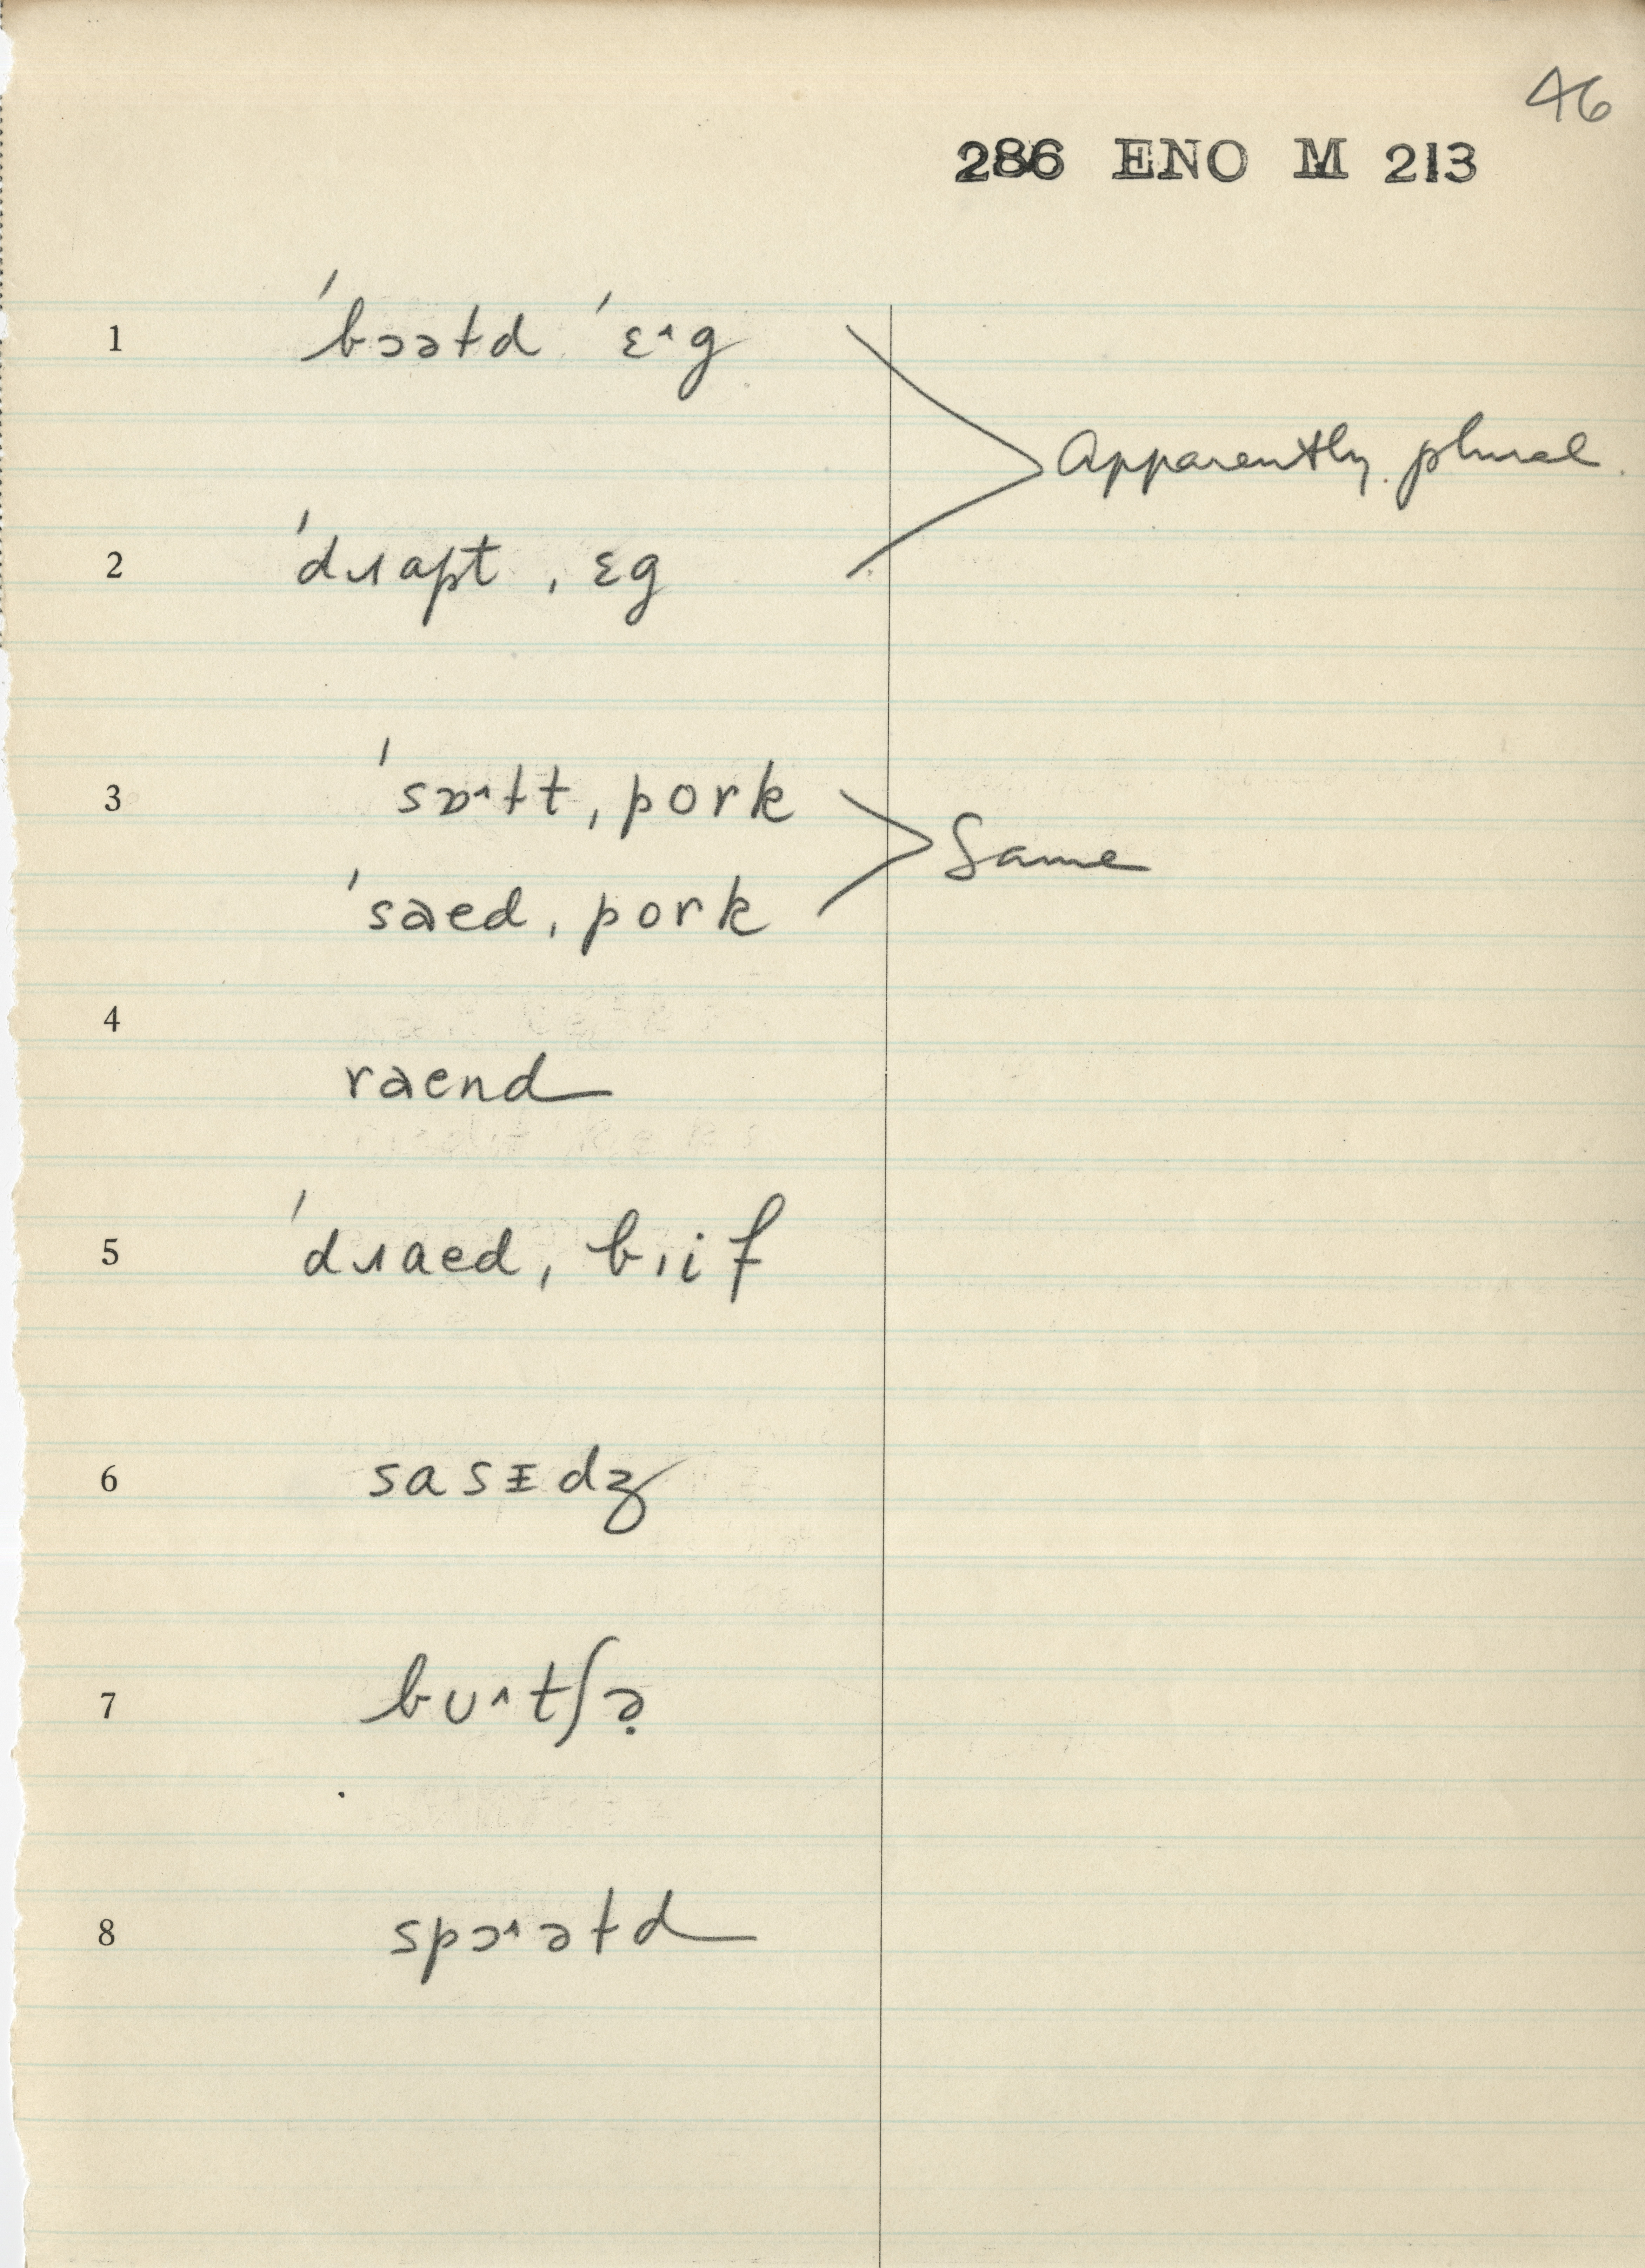 46
286 ENO M 213
1 ˈbɔətd ˈɛ˄g
Apparently plural.
2 ˈdɹapt ˌɛg
3 ˈsɒ˄ɫt ˌpork
Same
ˈsaed ˌpork
4
raend
5 ˈdɹaed ˌbˌif
6 sasᵻdʒ
7 bʊ˄tʃə̣
8 spɔ˄əɫd